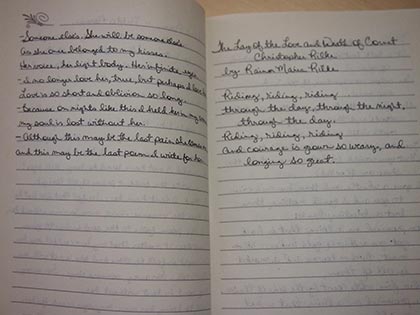 -Someone else's. She will be someone else's.
As she once belonged to my kisses.
Her voice, her light body. Her infinite eyes.
-I no longer love her, true, but perhaps I love her.
Love is so short and oblivion so long.
-Because on nights like this I held her in my arms,
my soul is lost without her.
-Although this may be the last pain she causes me,
and this may be the last poem I write for her.
The Lay of the Love and Death of Cornet
Christopher Rilke
by Rainer Maria Rilke
Riding, riding, riding
through the day, through the night,
through the day.
Riding, riding, riding
And courage is grown so weary, and
longing so great.